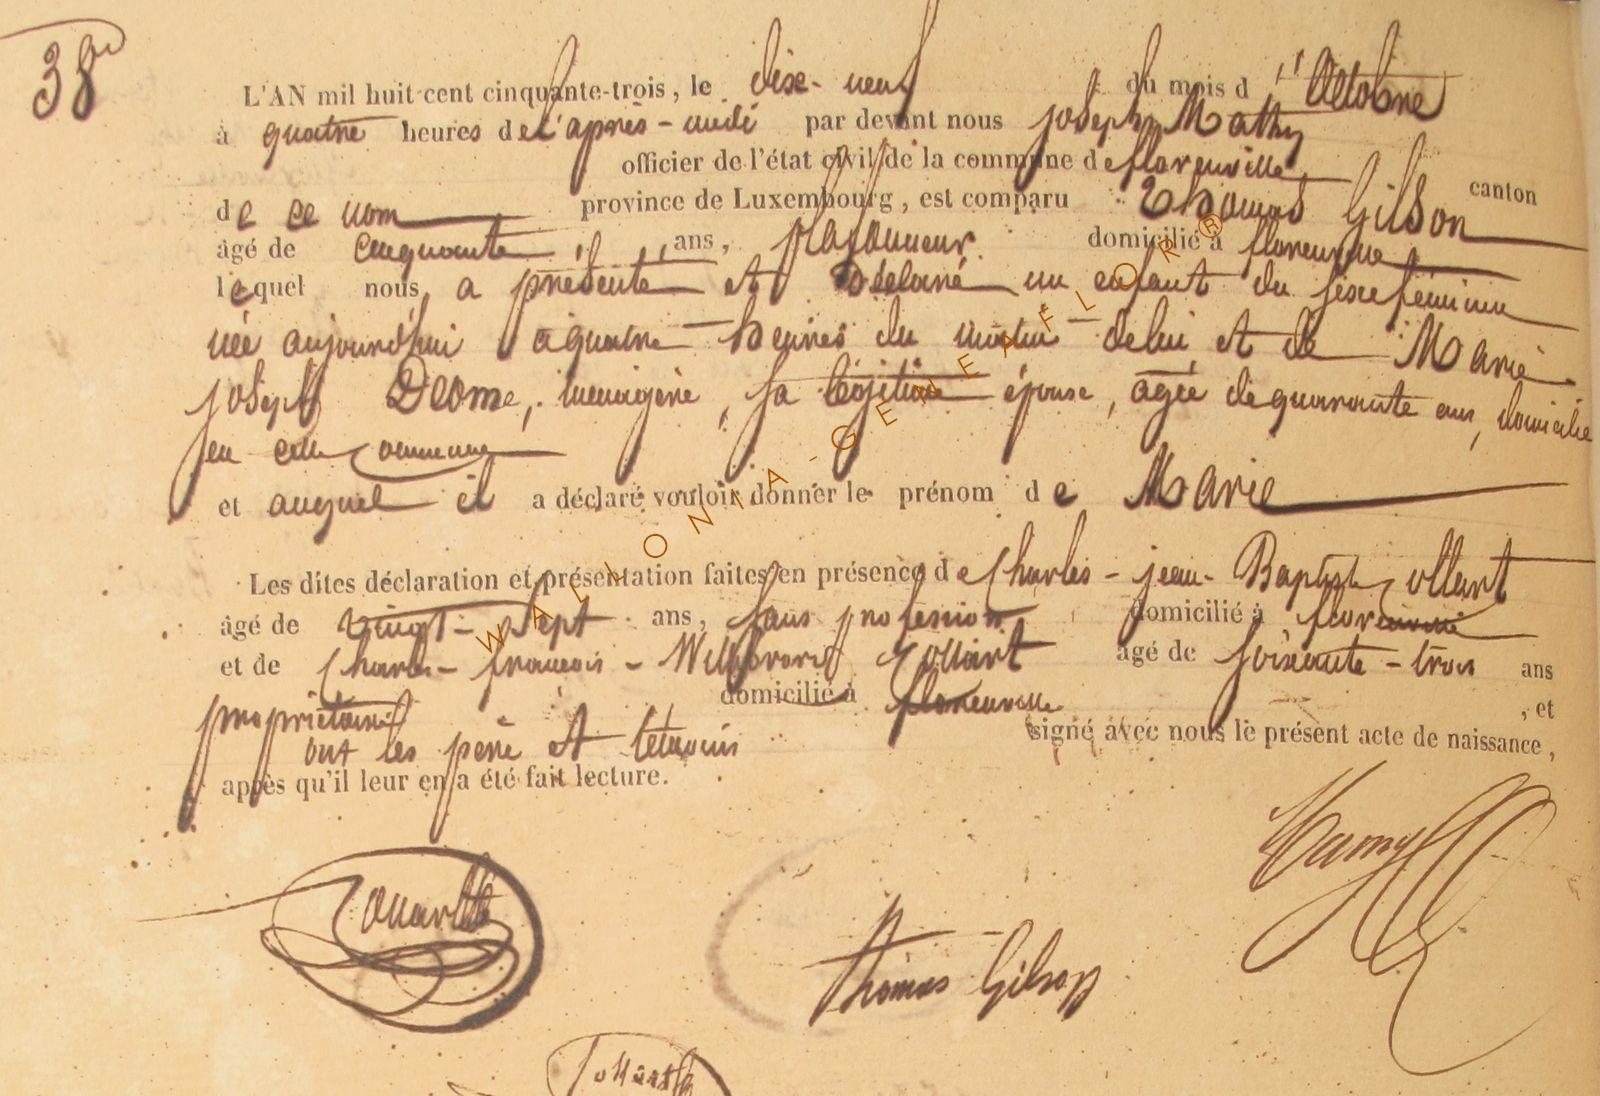 38
L'AN mil huit cent cinquante-trois, le dix-neuf du mois d'Octobre
à quatre heures de l'après-midi par devant nous joseph Mathy
officier de l'état civil de la commune de florenville canton
de ce nom province de Luxembourg, est comparu Thomas Gilson
âgé de cinquante ans, plafonneur domicilié à florenville
lequel nous a présenté et Déclaré un enfant du sexe féminin
née aujourd'hui à quatre heures du matin delui et de Marie
joseph Deom, menagère, sa légitime épouse, agée de quarante ans, domicilié
en cette commune
et auquel il a déclaré vouloir donner le prénom de Marie
Les dites déclaration et présentation faites en présence de Charles-jean-Baptiste
âgé de vingt-sept ans, sans profession domicilié à florenville
et de Charles-françois-Willibrord âgé de soixante-trois ans
propriétaire domicilié à florenville, et
ont les père et témoins signé avec nous le présent acte de naissance,
après qu'il leur en a été fait lecture.
Thomas Gilson
WALLONIA-GENEAFLOR®